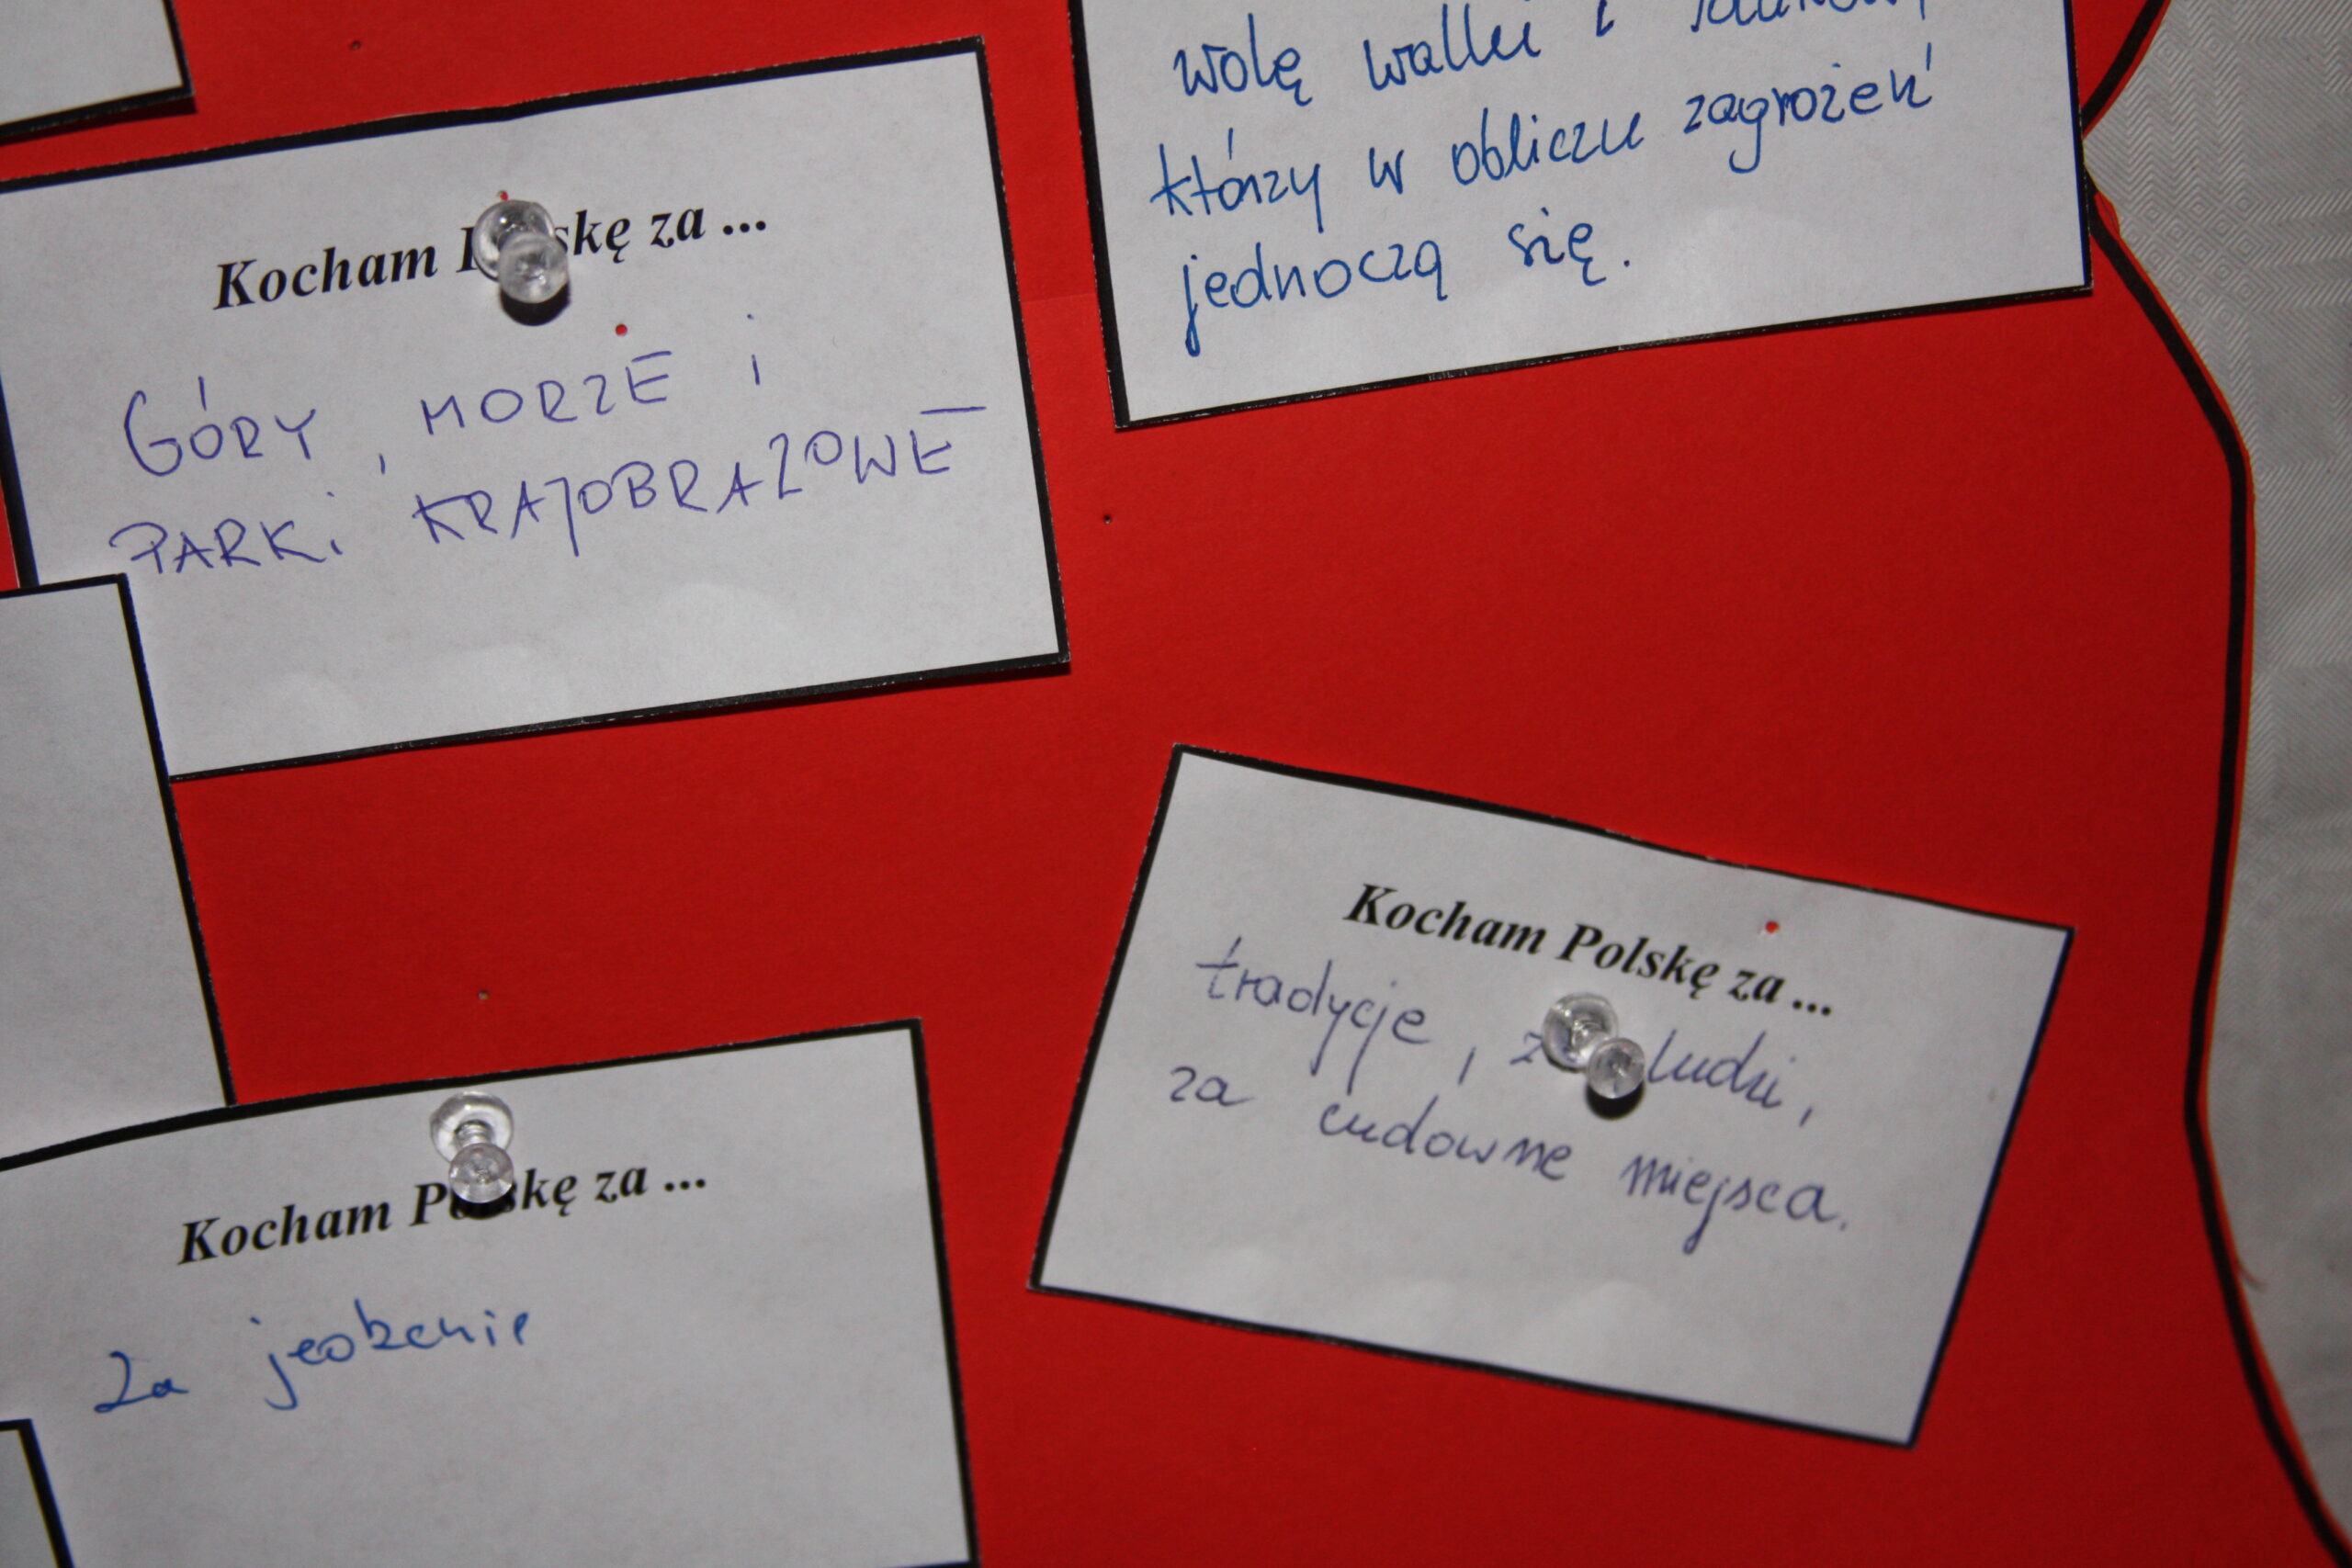 wolę walki i
którzy w obliczu zagrożeń
jednoczą się.
Kocham Polskę za ...
GÓRY, MORZE i
PARKi KRAJOBRAZOWE
Kocham Polskę za ...
tradycje, za ludzi,
za cudowne miejsca.
Kocham Polskę za ...
Za jedzenie